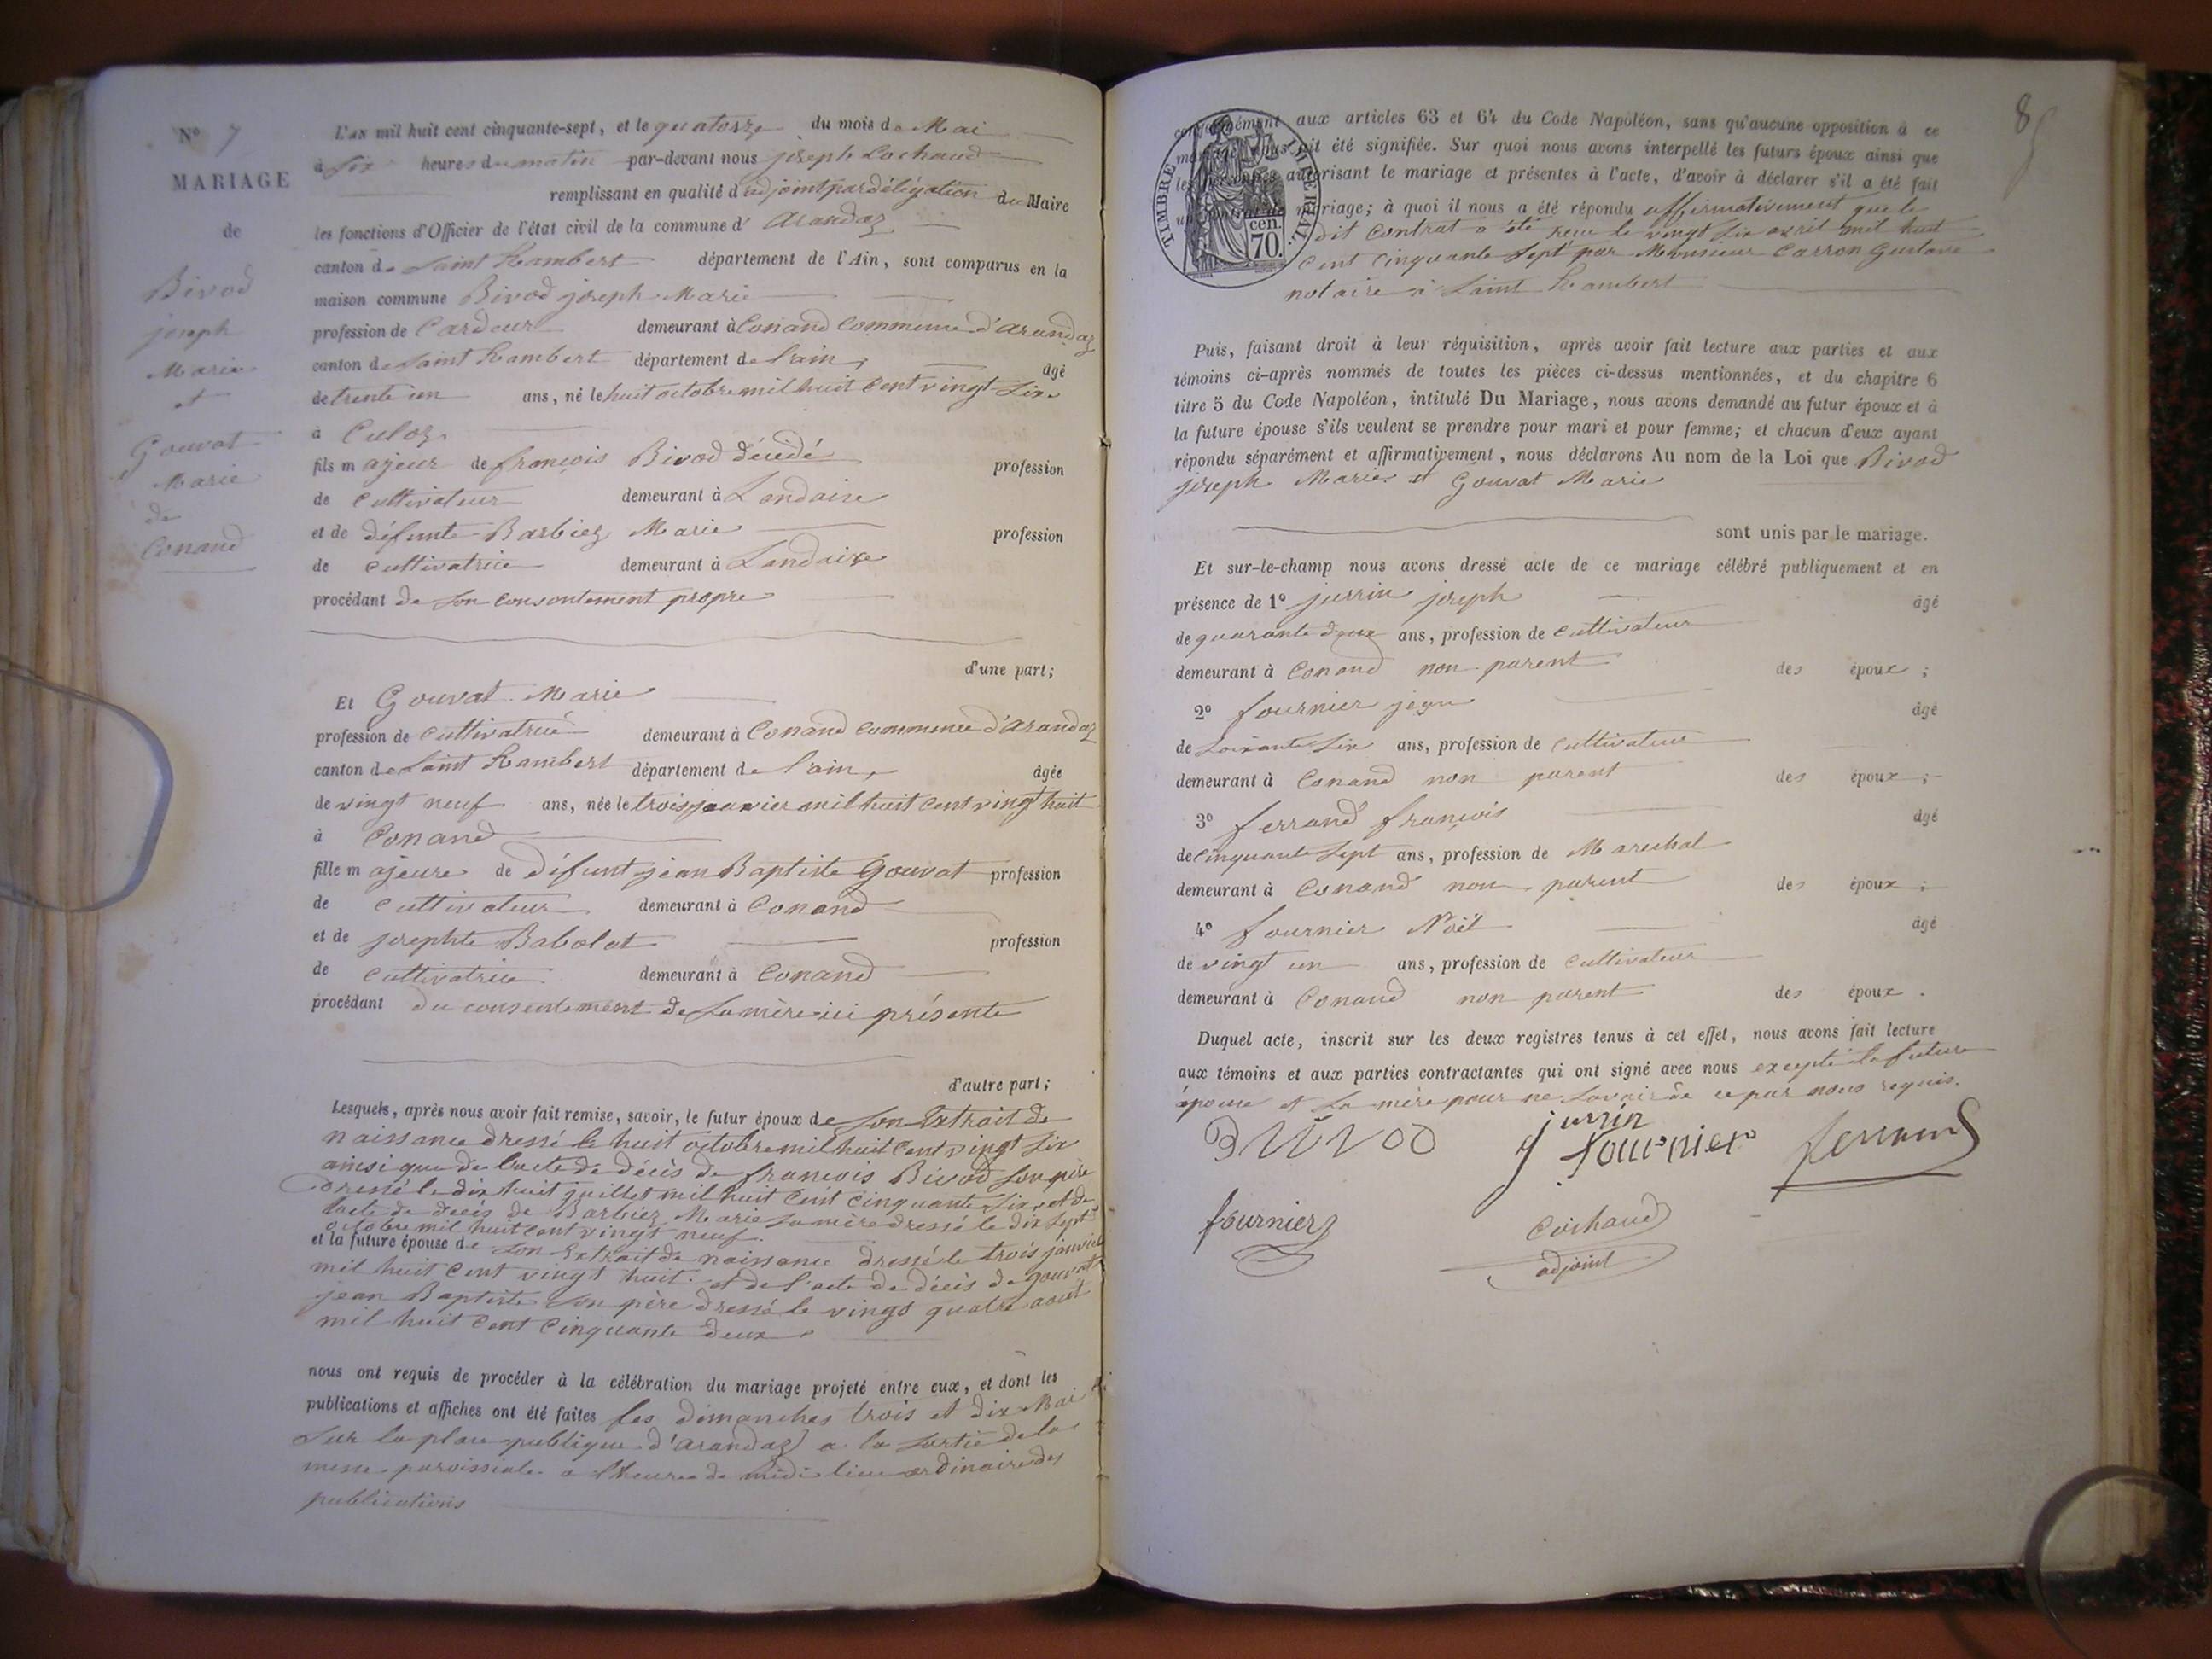 N° 7
MARIAGE
de
Bivod
joseph
Marie
et
Gouvat
Marie
de
Conand
L'an mil huit cent cinquante-sept, et le quatorze du mois de Mai
à six heures du matin par-devant nous joseph Cochaud
remplissant en qualité d'adjoint par délégation du Maire
les fonctions d'Officier de l'état civil de la commune d'Arandaz
canton de Saint Rambert département de l'Ain, sont comparus en la
maison commune Bivod joseph Marie
profession de Cardeur demeurant à Conand Commune d'Arandaz
canton de Saint Rambert département de l'ain, âgé
de trente un ans, né le huit octobre mil huit Cent vingt Six
à Culoz
fils majeur de françois Bivod décédé profession
de Cultivateur demeurant à Landaise
et de défunte Barbiez Marie profession
de cultivatrice demeurant à Landaize
procédant de son consentement propre
d'une part;
Et Gouvat Marie
profession de Cultivatrice demeurant à Conand commune d'Arandaz
canton de Saint Rambert département de l'ain, âgée
de vingt neuf ans, née le trois janvier mil huit Cent vingt huit
à Conand
fille majeure de défunt jean Baptiste Gouvat profession
de cultivateur demeurant à Conand
et de josephte Babolat profession
de cultivatrice demeurant à Conand
procédant du consentement de sa mère ici présente
d'autre part;
Lesquels, après nous avoir fait remise, savoir, le futur époux de son Extrait de
naissance dressé le huit octobre mil huit Cent vingt Six
ainsi que de l'acte de décès de françois Bivod son père
dressé le dix huit juillet mil huit Cent Cinquante Six, et de
l'acte de décès de Barbiez Marie sa mère dressé le dix sept
octobre mil huit cent vingt neuf.
et la future épouse de son Extrait de naissance dressé le trois janvier
mil huit Cent vingt huit. et de l'acte de décès de gouvat
jean Baptiste son père dressé le vingt quatre aout
mil huit Cent Cinquante deux
nous ont requis de procéder à la célébration du mariage projeté entre eux, et dont les
publications et affiches ont été faites les dimanches trois et dix Mai
sur la place publique d'Arandaz a la sortie de la
messe paroissiale a l'heure de midi lieu ordinaire des
publications
85
TIMBRE IMPÉRIAL.
cen.
70.
conformément aux articles 63 et 64 du Code Napoléon, sans qu'aucune opposition à ce
mariage nous ait été signifiée. Sur quoi nous avons interpellé les futurs époux ainsi que
les autorisant le mariage et présentes à l'acte, d'avoir à déclarer s'il a été fait
un contrat de mariage; à quoi il nous a été répondu affirmativement que le
dit Contrat a été reçu le vingt six avril mil huit
Cent Cinquante Sept par Monsieur Carron Gustave
notaire à Saint Rambert
Puis, faisant droit à leur réquisition, après avoir fait lecture aux parties et aux
témoins ci-après nommés de toutes les pièces ci-dessus mentionnées, et du chapitre 6
titre 5 du Code Napoléon, intitulé Du Mariage, nous avons demandé au futur époux et à
la future épouse s'ils veulent se prendre pour mari et pour femme; et chacun d'eux ayant
répondu séparément et affirmativement, nous déclarons Au nom de la Loi que Bivod
joseph Marie et Gouvat Marie
sont unis par le mariage.
Et sur-le-champ nous avons dressé acte de ce mariage célébré publiquement et en
présence de 1° jurrin joseph âgé
de quarante deux ans, profession de cultivateur
demeurant à Conand non parent des époux;
2° fournier jean âgé
de soixante six ans, profession de Cultivateur
demeurant à Conand non parent des époux;
3° ferrand françois âgé
de cinquante sept ans, profession de Marechal
demeurant à Conand non parent des époux;
4° fournier Noël âgé
de vingt un ans, profession de Cultivateur
demeurant à Conand non parent des époux.
Duquel acte, inscrit sur les deux registres tenus à cet effet, nous avons fait lecture
aux témoins et aux parties contractantes qui ont signé avec nous excepté la future
épouse et sa mère pour ne savoir de ce par nous requis.
jurrin
j fournier
ferrand
fournier
Cochaud
adjoint